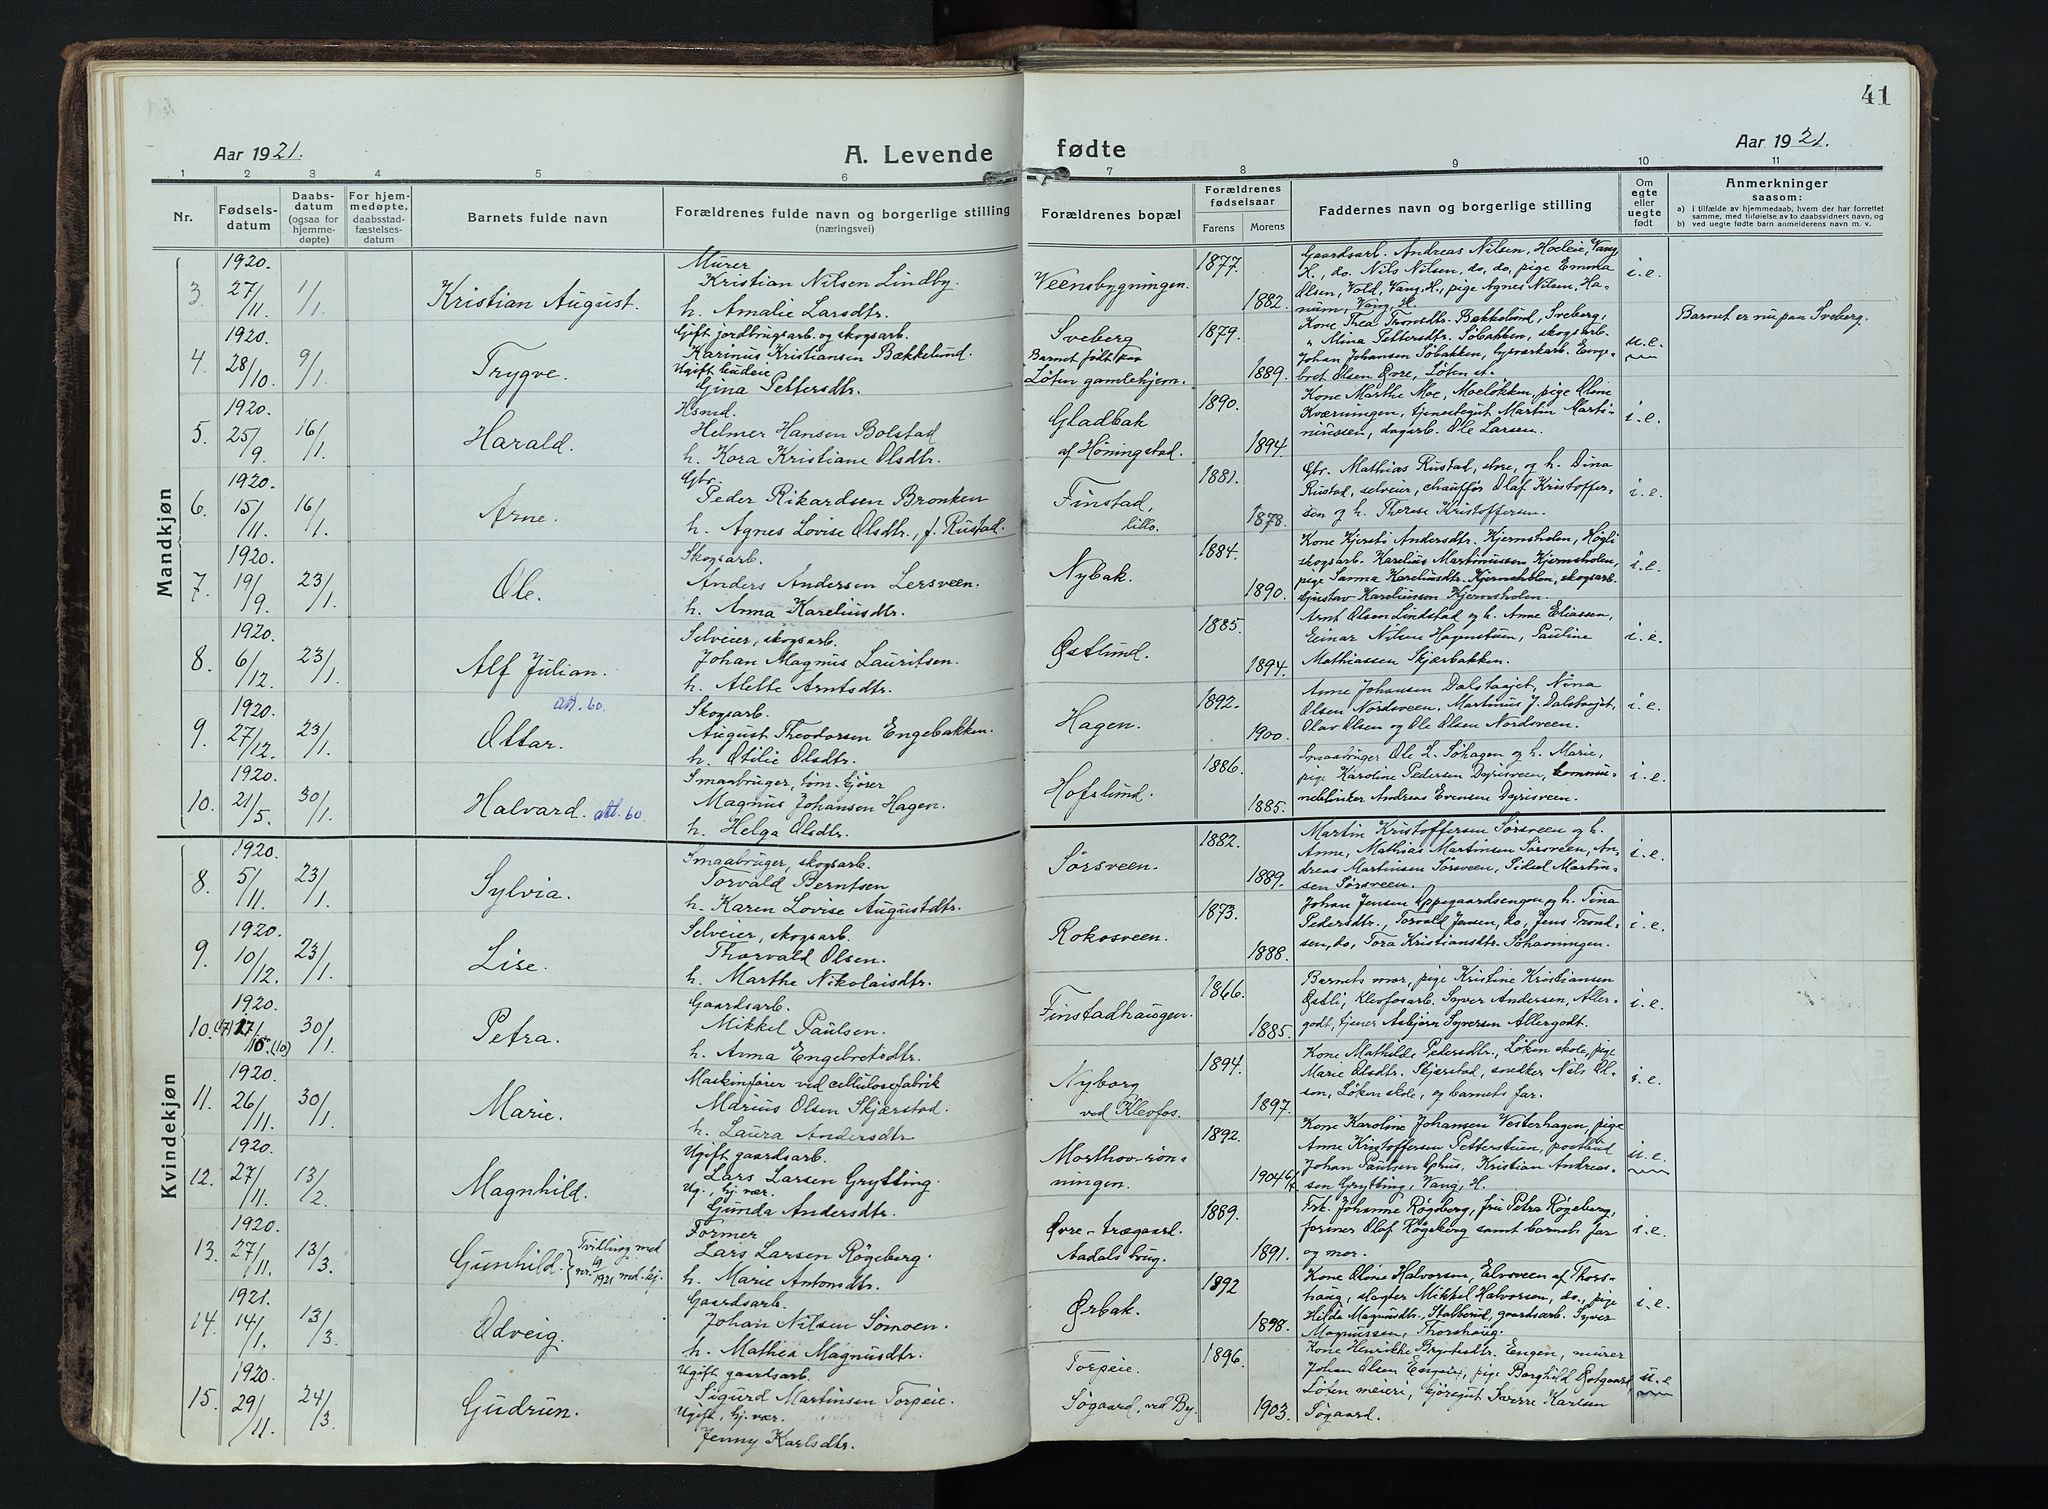 41
Aar 1921.
A. Levende fødte
Aar 1921.
1 2 3 4 5 6 7 8 9 10 11
Nr.
Fødsels-
datum
Daabs-
datum
(ogsaa for
hjemme-
døpte)
For hjem-
medøpte,
daabsstad-
fæstelses-
datum
Barnets fulde navn
Forældrenes fulde navn og borgerlige stilling
(næringsvei)
Forældrenes bopæl
Forældrenes
fødselsaar
Farens Morens
Faddernes navn og borgerlige stilling
Om
egte
eller
uegte
født
Anmerkninger
saasom:
a) i tilfælde av hjemmedaab, hvem der har forrettet
samme, med tilføielse av to daabsvidners navn, og
b) ved uegte fødte barn anmelderens navn m. v.
Mandkjøn
3. 1920. 27/11. 1/1
Kristian August.
Murer
Kristian Nilsen Lindby.
h. Amalie Larsdtr.
Veensbygningen.
1877.
1882.
Gaardsarb. Andreas Nilsen, Hoeleie, Vang
H., do. Nils Nilsen, do, do, pige Emma
Olsen, Vold, Vang, H., pige Agnes Nilsen, Ha-
num, Vang, H.
i.e.
4. 1920. 28/10. 9/1
Trygve.
Gift jordbrugsarb. og skogsarb.
Karinus Kristiansen Bækkelund.
Ugift budeie
Gina Pettersdtr.
Sveberg
Barnet født paa
Løten gamlehjem.
1879.
1889.
Kone Thea Tronsdtr. Bækkelund, Sveberg,
" Mina Pettersdtr. Søbakken, skogsarb.
Johan Johansen Søbakken, Enge-
bret Olsen Øvre, Løten st.
u.e.
Barnet er nu paa Sveberg.
5. 1920. 25/9. 16/1
Harald.
Hsmd.
Helmer Hansen Bolstad
h. Kora Kristiane Olsdtr.
Gladbak
af Høningstad.
1890.
1894.
Kone Marthe Moe, Moeløkken, pige Oline
Kværningen, tjenestegut Martin Marti-
niussen, dagarb. Ole Larsen.
i.e.
6. 1920. 15/11. 16/1
Arne.
Gbr.
Peder Rikardsen Bronken
h. Agnes Lovise Olsdtr., f. Rustad.
Finstad,
lille.
1881.
1878.
Gbr. Mathias Rustad, øvre, og h. Dina
Rustad, selveier, chauffør Olaf Kristoffer-
sen og h. Therese Kristoffersen.
i.e.
7. 1920. 19/9. 23/1
Ole.
Skogsarb.
Anders Andersen Lersveen.
h. Anna Kareliusdtr.
Nybak.
1884.
1890.
Kone Kjersti Andersdtr. Kjernsholen, Høgli
skogsarb. Karelius Martinussen Kjernsholen,
pige Sanna Kareliusdtr. Kjernsholen, skogsarb.
Gustav Kareliussen Kjernsholen.
i.e.
8. 1920. 6/12. 23/1
Alf Julian.
Selveier, skogsarb.
Johan Magnus Lauritsen.
h. Alette Arntsdtr.
Østlund.
1885.
1894.
Arnt Olsen Lindstad og h. Anne Eliassen,
Einar Nilsen Hagenstuen, Pauline
Mathiassen Skjærbakken.
i.e.
9. 1920. 27/12. 23/1
att. 60.
Ottar.
Skogsarb.
August Theodorsen Engebakken.
h. Otilie Olsdtr.
Hagen.
1892.
1900.
Anne Johansen Dalstaajet, Nina
Olsen Nordsveen, Martinus J. Dalstaajet,
Olav Olsen og Ole Olsen Nordsveen.
i.e.
10. 1920. 21/5. 30/1
Halvard. att. 60.
Smaabruger, tøm. kjører
Magnus Johansen Hagen.
h. Helga Olsdtr.
Hofslund.
1886.
1885.
Smaabruger Ole L. Søhagen og h. Marie,
pige Karoline Pedersen Dyrisveen, kommu-
Andreas Evensen Dyrisveen.
i.e.
Kvindekjøn
8. 1920. 5/11. 23/1
Sylvia.
Smaabruger, skogsarb.
Torvald Berntsen
h. Karen Lovise Augustdtr.
Sørsveen.
1882.
1889.
Martin Kristoffersen Sørsveen og h.
Anne, Mathias Martinsen Sørsveen, An-
dreas Martinsen Sørsveen, Sidsel Martin-
sen Sørsveen.
i.e.
9. 1920. 10/12. 23/1
Lise.
Selveier, skogsarb.
Thorvald Olsen.
h. Marthe Nikolaisdtr.
Rokosveen.
1873.
1888.
Johan Jensen Oppegaardsengen og h. Tina
Pedersdtr., Torvald Jensen, do, Jens Trond-
sen, do, Tora Kristiansdtr. Søhavningen.
i.e.
10. 1920. (17) 17/10. (10) 30/1
Petra.
Gaardsarb.
Mikkel Paulsen.
h. Anna Engebretsdtr.
Finstadhaugen.
1866.
1885.
Barnets mor, pige Kristine Kristiansen
Østli, Kleofosarb. Syver Andersen, Aller-
godt, tjener Asbjørn Syversen Allergodt.
i.e.
11. 1920. 26/11. 30/1
Marie.
Maskinfører ved cellulosefabrik
Marius Olsen Skjærstad.
h. Laura Andersdtr
Nyborg
ved Kleofos.
1894.
1897.
Kone Mathilde Pedersdtr., Løken skole, pige
Marie Olsdtr. Skjærstad, snedker Nils Ol-
sen, Løken skole, og barnets far.
i.e.
12. 1920. 27/11. 13/2
Magnhild.
Ugift gaardsarb.
Lars Larsen Grytting.
Ug., hj. vær.
Gunda Andersdtr.
Morthovrøn-
ningen.
1892.
1904 6/4
Kone Karoline Johansen Vesterhagen, pige
Anne Kristoffersen Petterstuen, postbud
Johan Paulsen Ophus, Kristian Andreas-
sen Grytting, Vang, H.
u.e.
13. 1920. 27/11. 13/3
Gunhild. { Tvilling med
nr. 19 1921 md. kj.
Former
Lars Larsen Røgeberg.
h. Marie Antonsdtr.
Øvre-trægaard.
Aadals brug.
1889.
1891.
Frk. Johanne Røgeberg, fru Petra Røgeberg,
former Olaf Røgeberg samt barnets far
og mor.
i.e.
14. 1921. 14/1. 13/3
Odveig.
Gaardsarb.
Johan Nilsen Sømoen.
h. Mathea Magnusdtr.
Ørbak.
1892
1898.
Kone Oline Halvorsen, Elvsveen af Thors-
haug, slagter Mikkel Halvorsen, do, pige
Hilda Magnusdtr. Stalberud, gaardsarb. Syver
Magnussen, Thorshaug.
i.e.
15. 1920. 29/11. 24/3
Gudrun.
Ugift gaardsarb.
Sigurd Martinsen Torpeie.
Ugift, hj. vær.
Jenny Karlsdtr.
Torpeie
Søgaard, ved By.
1896.
1903.
Kone Henrikke Engen, murer
Johan Olsen Engen, pige Borghild
Løten meieri, kjøregut Sverre Karlsen
Søgaard.
u.e